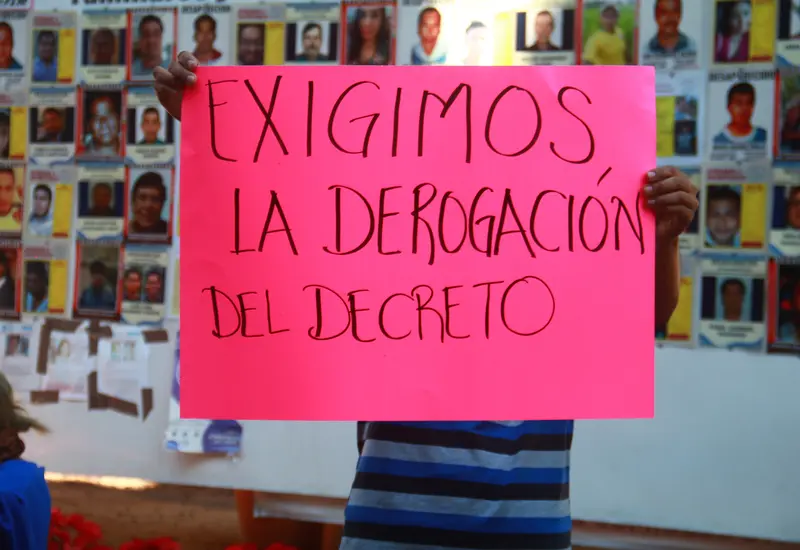 EXIGIMOS
LA DEROGACIÓN
DEL DECRETO